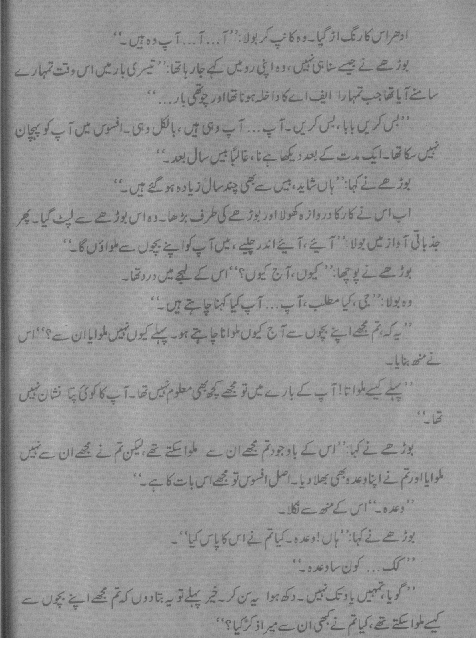 ادھر اس کا رنگ اڑ گیا۔ وہ کانپ کر بولا: ’’آ... آ... آپ وہ ہیں۔‘‘
بوڑھے نے جیسے سنا ہی نہیں، وہ اپنی رو میں کہے جا رہا تھا: ’’تیسری بار میں اس وقت تمہارے
سامنے آیا تھا جب تمہارا ایف اے کا داخلہ ہونا تھا اور چوتھی بار...‘‘
’’بس کریں بابا، بس کریں۔ آپ... آپ وہی ہیں، بالکل وہی۔ افسوس میں آپ کو پہچان
نہیں سکا تھا۔ ایک مدت کے بعد دیکھا ہے نا، غالباً بیس سال بعد۔‘‘
بوڑھے نے کہا: ’’ہاں شاید، بیس سے بھی چند سال زیادہ ہو گئے ہیں۔‘‘
اب اس نے کار کا دروازہ کھولا اور بوڑھے کی طرف بڑھا۔ وہ اس بوڑھے سے لپٹ گیا۔ پھر
جذباتی آواز میں بولا: ’’آئیے، آئیے اندر چلیے، میں آپ کو اپنے بچوں سے ملواؤں گا۔‘‘
بوڑھے نے پوچھا: ’’کیوں، آج کیوں؟‘‘ اس کے لہجے میں درد تھا۔
وہ بولا: ’’جی، کیا مطلب، آپ... آپ کیا کہنا چاہتے ہیں۔‘‘
’’یہ کہ تم مجھے اپنے بچوں سے آج کیوں ملوانا چاہتے ہو۔ پہلے کیوں نہیں ملوایا ان سے؟‘‘ اس
نے منھ بنایا۔
’’پہلے کیسے ملواتا! آپ کے بارے میں تو مجھے کچھ بھی معلوم نہیں تھا۔ آپ کا کوئی پتا نشان نہیں
تھا۔‘‘
بوڑھے نے کہا: ’’اس کے باوجود تم مجھے ان سے ملوا سکتے تھے، لیکن تم نے مجھے ان سے نہیں
ملوایا اور تم نے اپنا وعدہ بھی بھلا دیا۔ اصل افسوس تو مجھے اس بات کا ہے۔‘‘
’’وعدہ۔‘‘ اس کے منھ سے نکلا۔
بوڑھے نے کہا: ’’ہاں! وعدہ۔ کیا تم نے اس کا پاس کیا‘‘۔
’’کک... کون سا وعدہ۔‘‘
’’گویا، تمہیں یاد تک نہیں۔ دکھ ہوا یہ سن کر۔ خیر پہلے تو یہ بتا دوں کہ تم مجھے اپنے بچوں سے
کیسے ملوا سکتے تھے، کیا تم نے کبھی ان سے میرا ذکر کیا؟‘‘